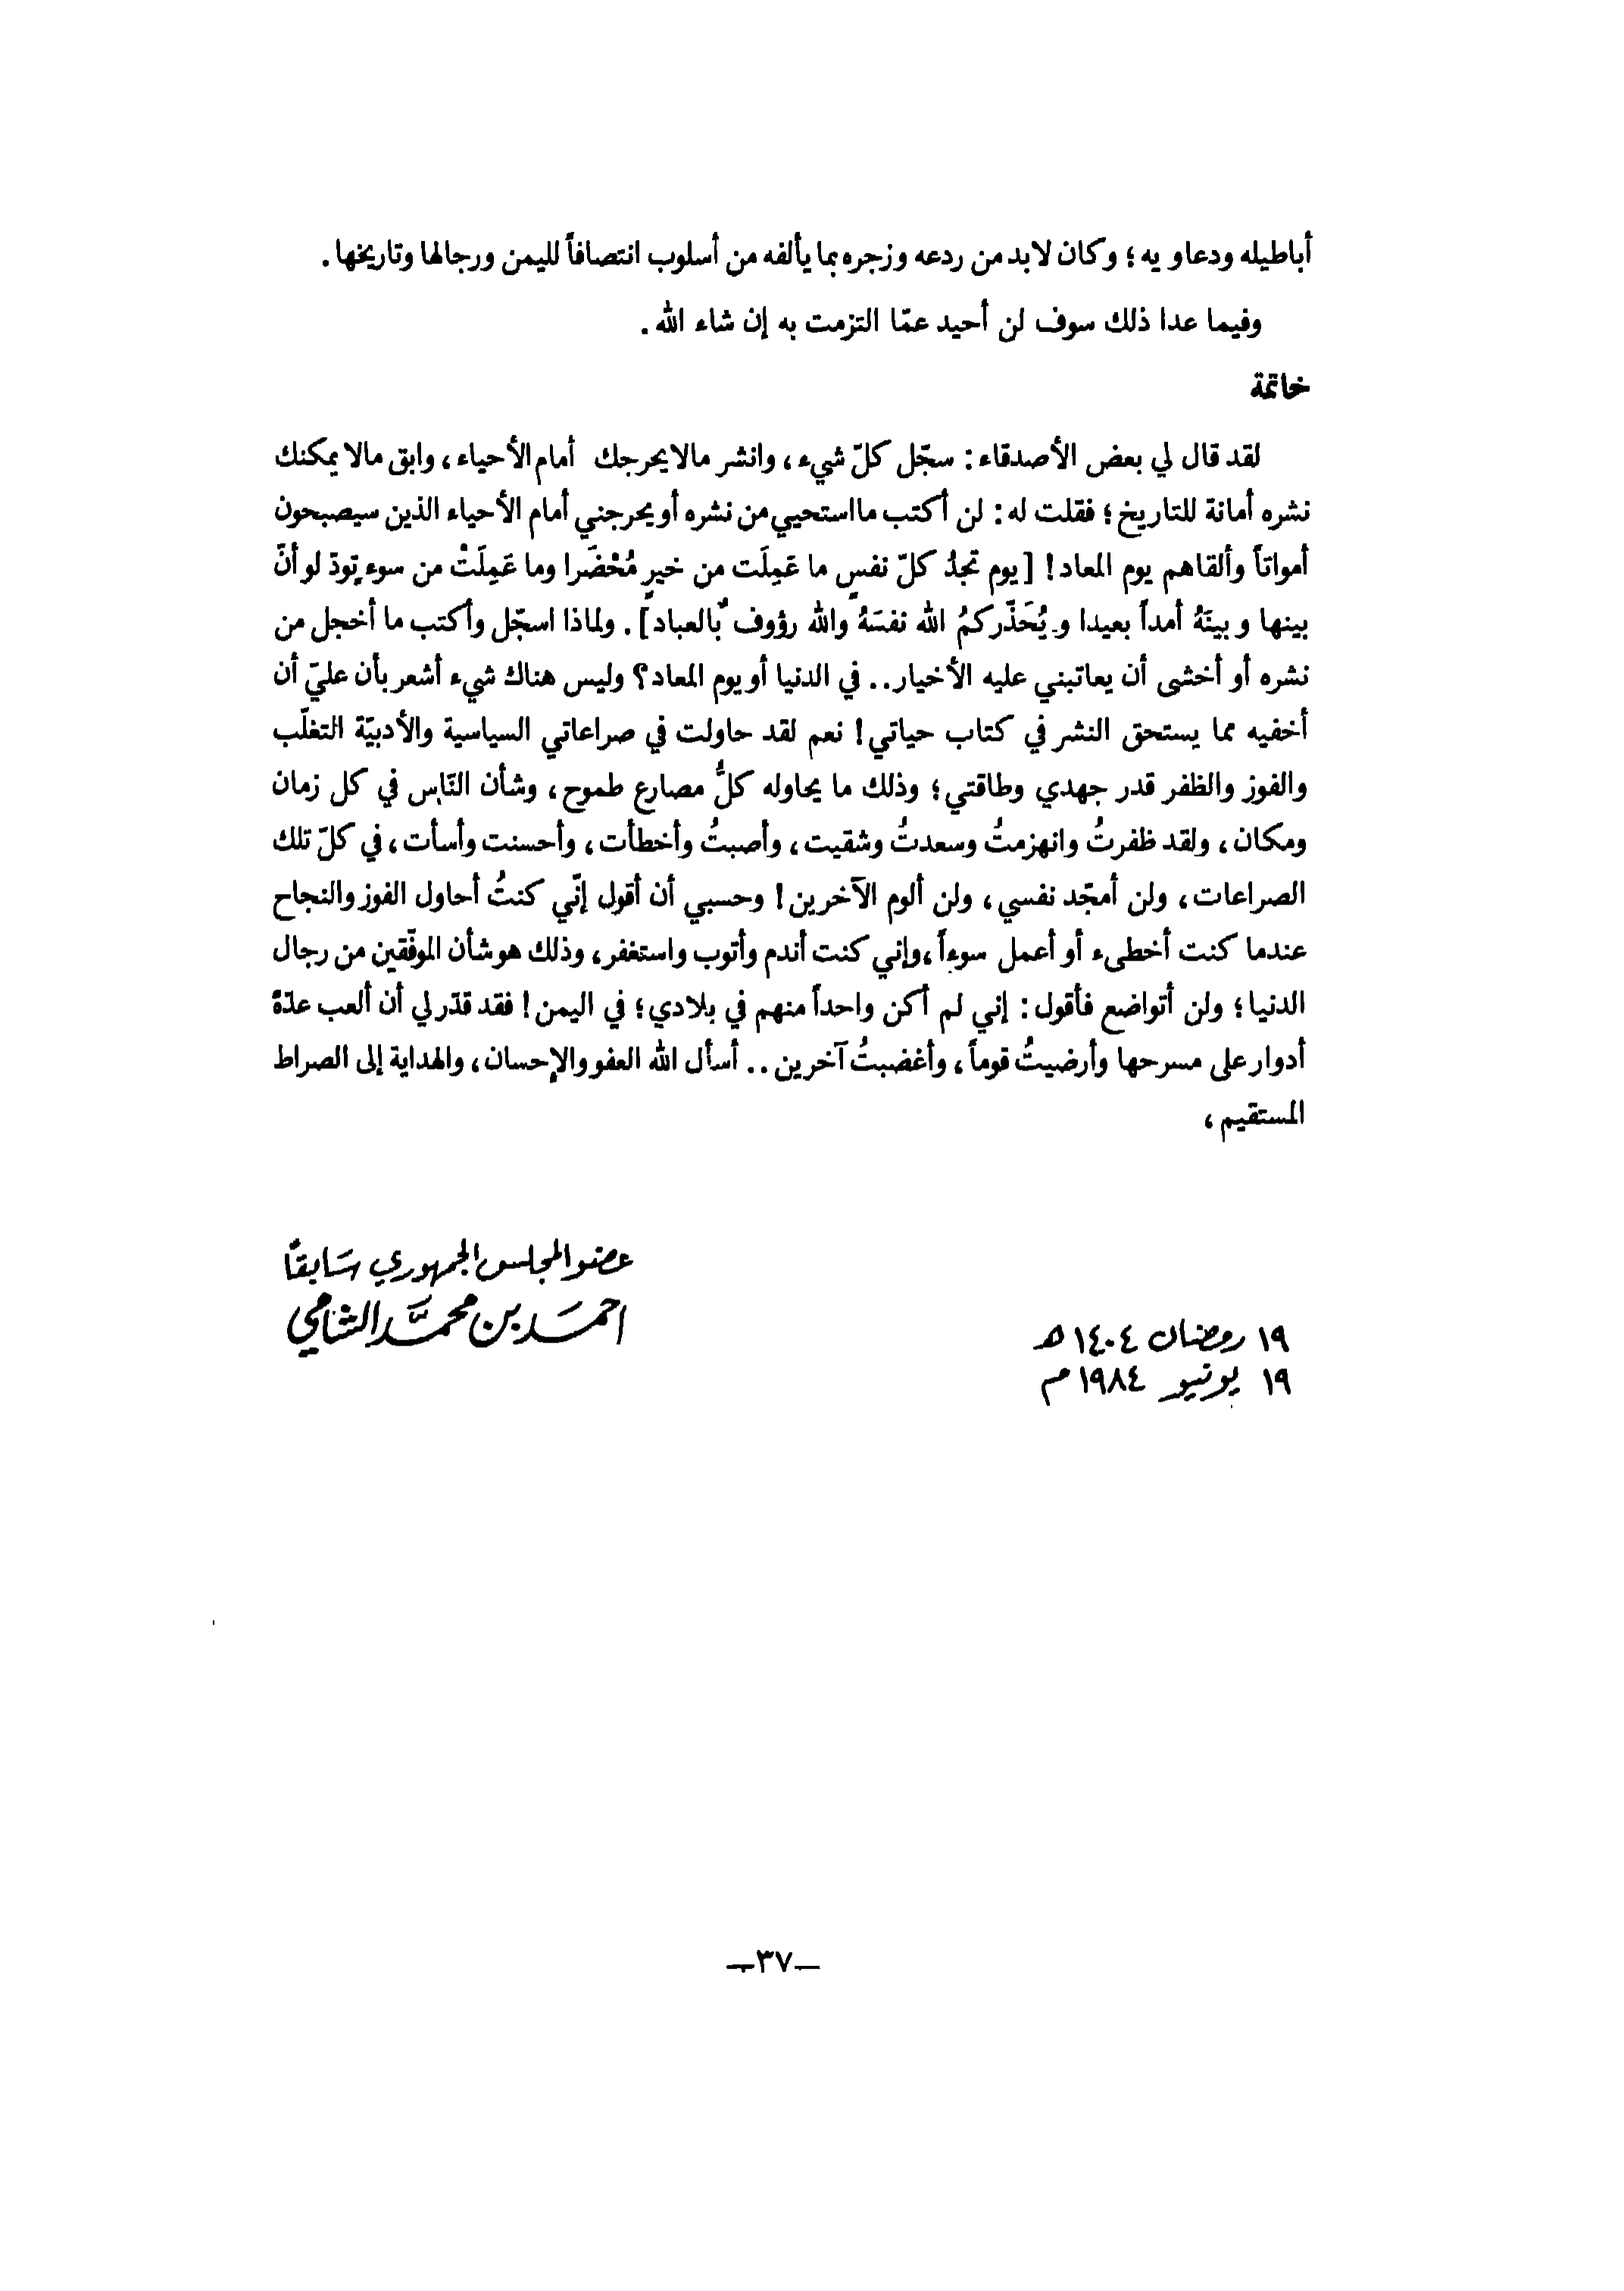 أباطيله ودعاويه ؛ وكان لابد من ردعه وزجره بما يألفه من أسلوب انتصافاً لليمن ورجالها وتاريخها .
وفيما عدا ذلك سوف لن أحيد عمّا التزمت به إن شاء الله .
خاتمة
لقد قال لي بعض الأصدقاء : سجّل كلّ شيء ، وانشر مالا يحرجك أمام الأحياء ، وابق مالا يمكنك
نشره أمانة للتاريخ ؛ فقلت له : لن أكتب ما استحيي من نشره أو يحرجني أمام الأحياء الذين سيصبحون
أمواتاً وألقاهم يوم المعاد ! [يوم تجدُ كلّ نفسٍ ما عَمِلَت من خيرٍ مُحْضَرا وما عَمِلَتْ من سوءٍ تودّ لو أنّ
بينها وبينَهُ أمداً بعيدا ويُحَذّركمُ الله نفسَهُ والله رؤوفٌ بالعباد] . ولماذا اسجّل وأكتب ما أخجل من
نشره أو أخشى أن يعاتبني عليه الأخيار .. في الدنيا أو يوم المعاد ؟ وليس هناك شيء أشعر بأن عليّ أن
أخفيه مما يستحق النشر في كتاب حياتي ! نعم لقد حاولت في صراعاتي السياسية والأدبيّة التغلّب
والفوز والظفر قدر جهدي وطاقتي ؛ وذلك ما يحاوله كلُّ مصارع طموح ، وشأن النّاس في كل زمان
ومكان ، ولقد ظفرتُ وانهزمتُ وسعدتُ وشقيت ، وأصبتُ وأخطأت ، وأحسنت وأسأت ، في كلّ تلك
الصراعات ، ولن أمجّد نفسي ، ولن ألوم الآخرين ! وحسبي أن أقول إنّي كنتُ أحاول الفوز والنجاح
عندما كنت أخطىء أو أعمل سوءاً ، وإني كنت أندم وأتوب واستغفر ، وذلك هو شأن الموفّقين من رجال
الدنيا ؛ ولن أتواضع فأقول : إني لم أكن واحداً منهم في بلادي ؛ في اليمن ! فقد قدّر لي أن ألعب عدّة
أدوار على مسرحها وأرضيتُ قوماً ، وأغضبتُ آخرين .. أسأل الله العفو والإحسان ، والهداية إلى الصراط
المستقيم ،
عضو المجلس الجمهوري سَابقاً
احمَد بن محمَّد الشامي
١٩ رمضان ١٤٠٤ هـ
١٩ يونيو ١٩٨٤ م
—٣٧—